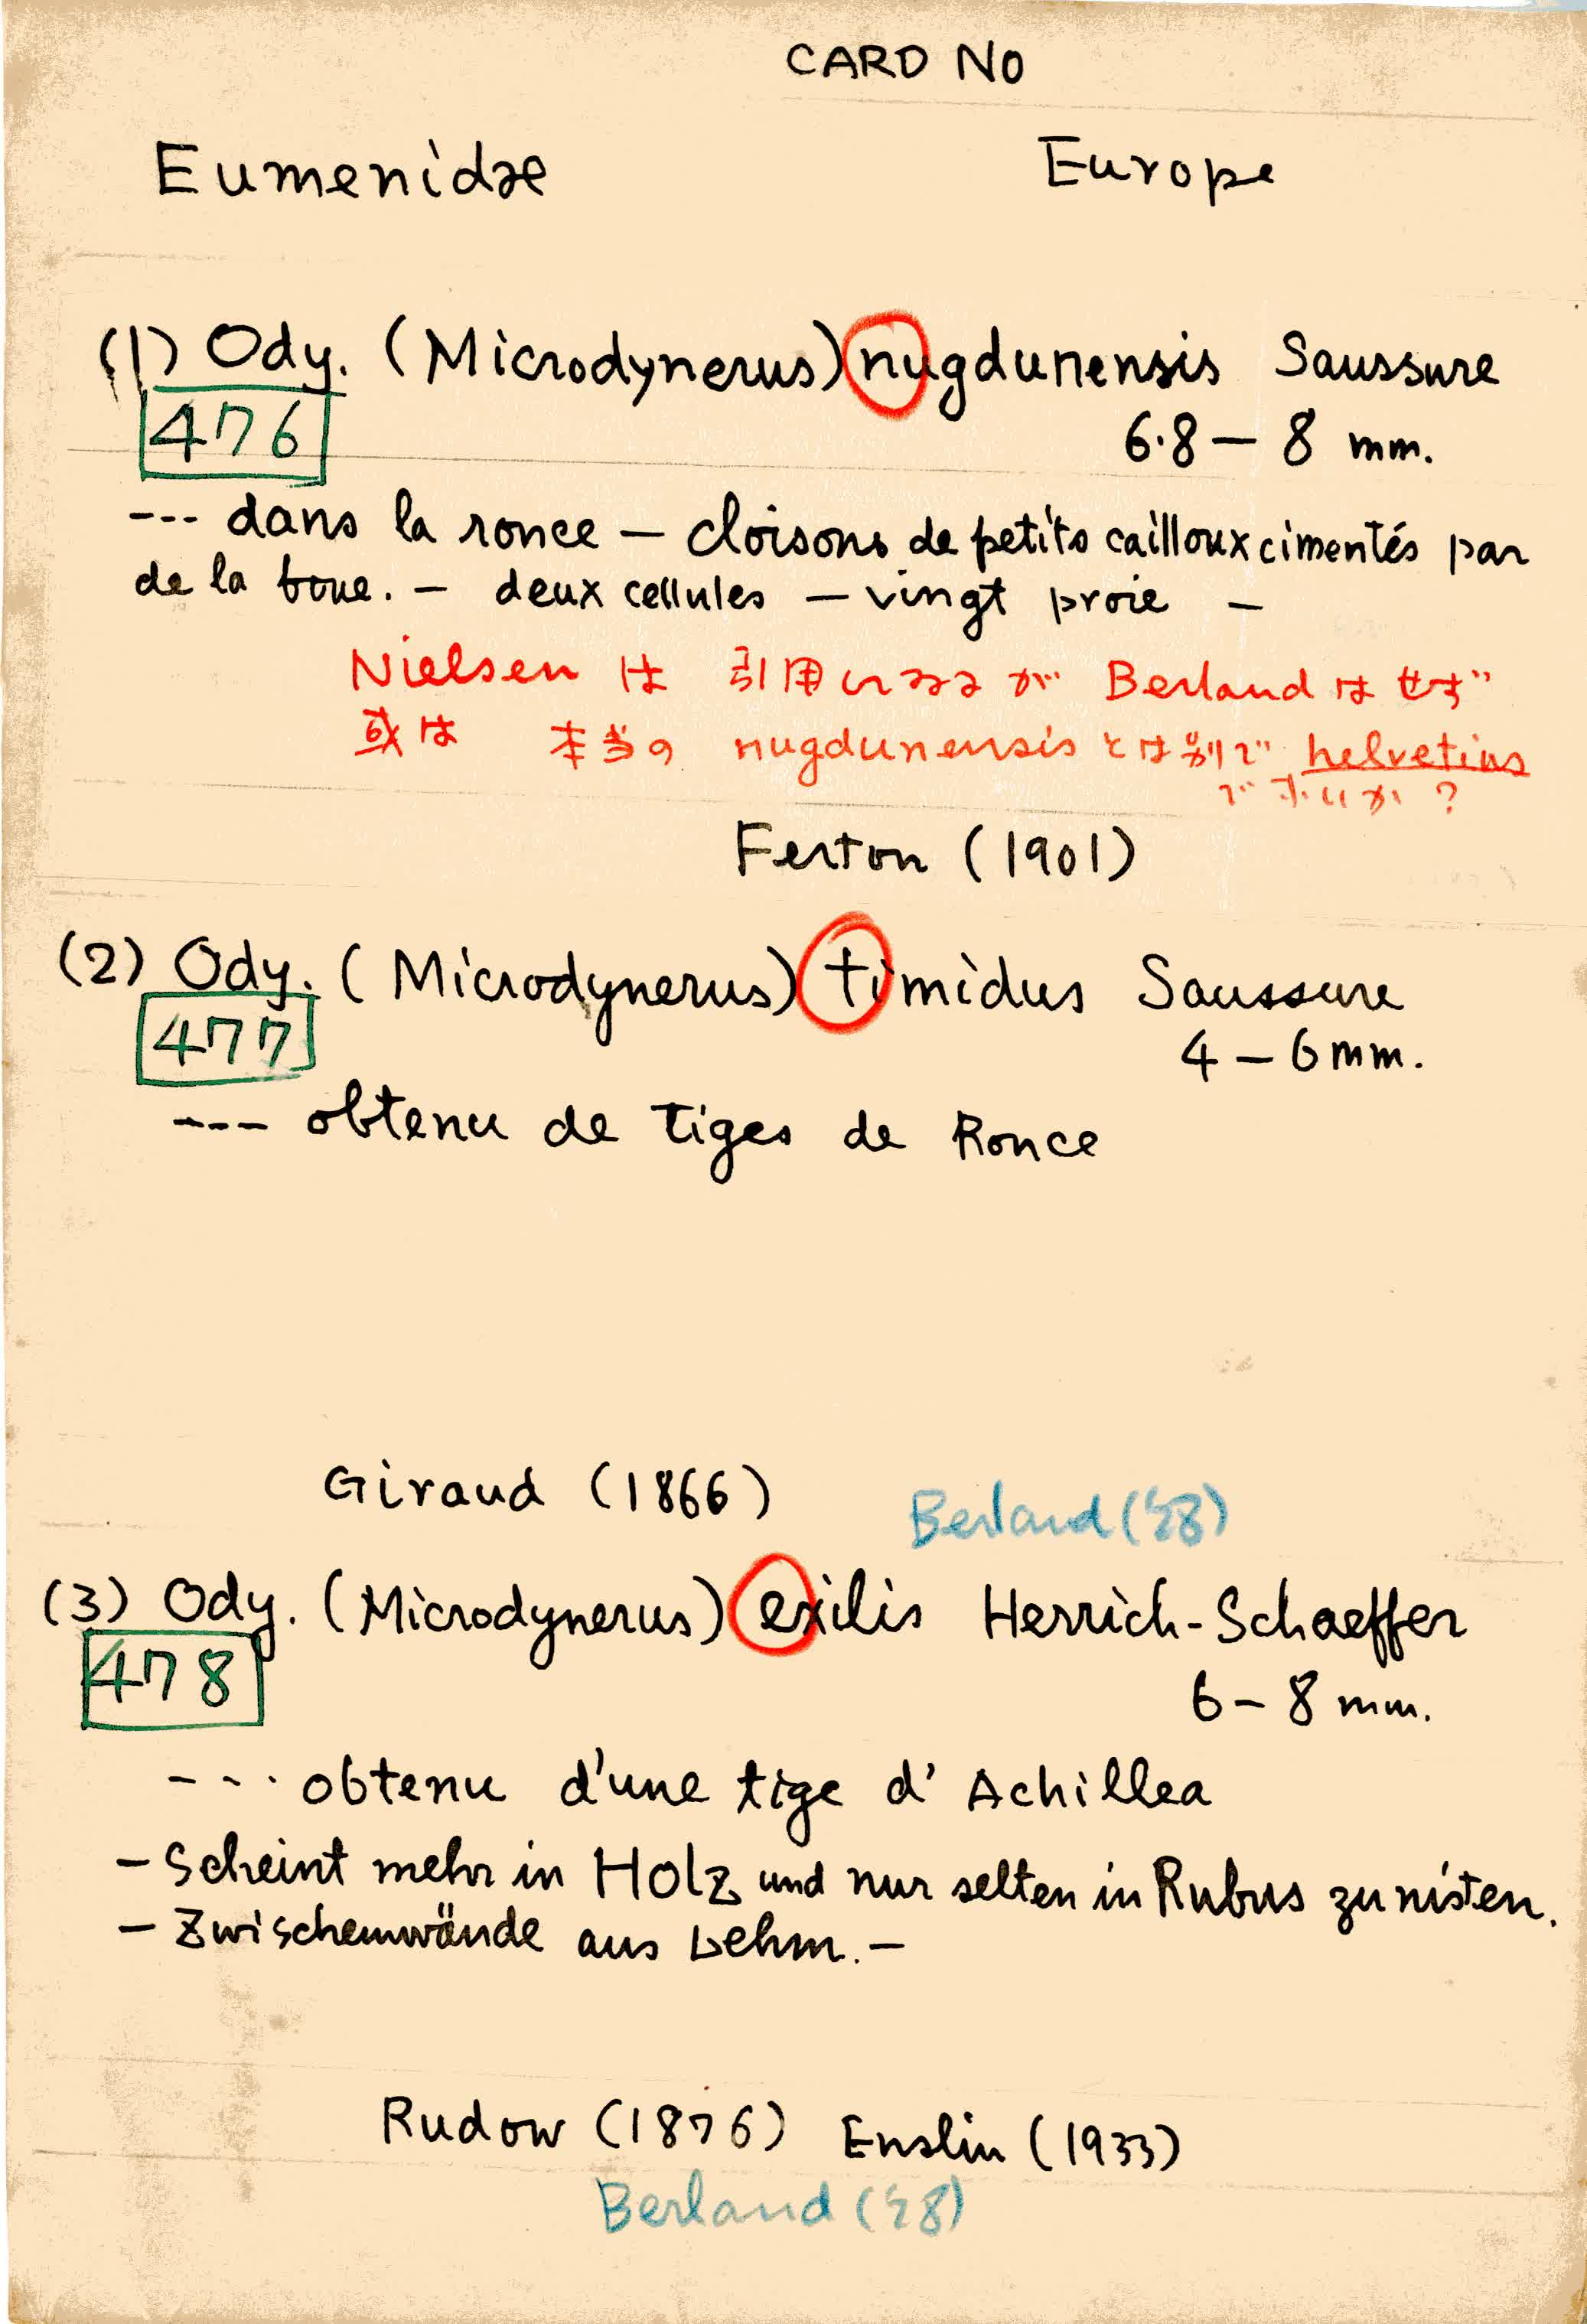 CARD NO
Eumenidae
Europe
(1) Ody. (Microdynerus) nugdunensis Saussure
476
6.8 — 8 mm.
--- dans la ronce — cloisons de petits cailloux cimentés par
de la boue. — deux cellules — vingt proie —
Nielsen は 引用しているが Berland はせず
或は 本当の nugdunensis とは別で helvetius
ではないか?
Ferton (1901)
(2) Ody. (Microdynerus) timidus Saussure
477
4 — 6 mm.
--- obtenu de tiges de Ronce
Giraud (1866)
Berland ('28)
(3) Ody. (Microdynerus) exilis Herrich-Schaeffer
478
6 — 8 mm.
--- obtenu d'une tige d' Achillea
— Scheint mehr in Holz und nur selten in Rubus zu nisten.
— Zwischenwände aus Lehm. —
Rudow (1876) Enslin (1933)
Berland ('28)